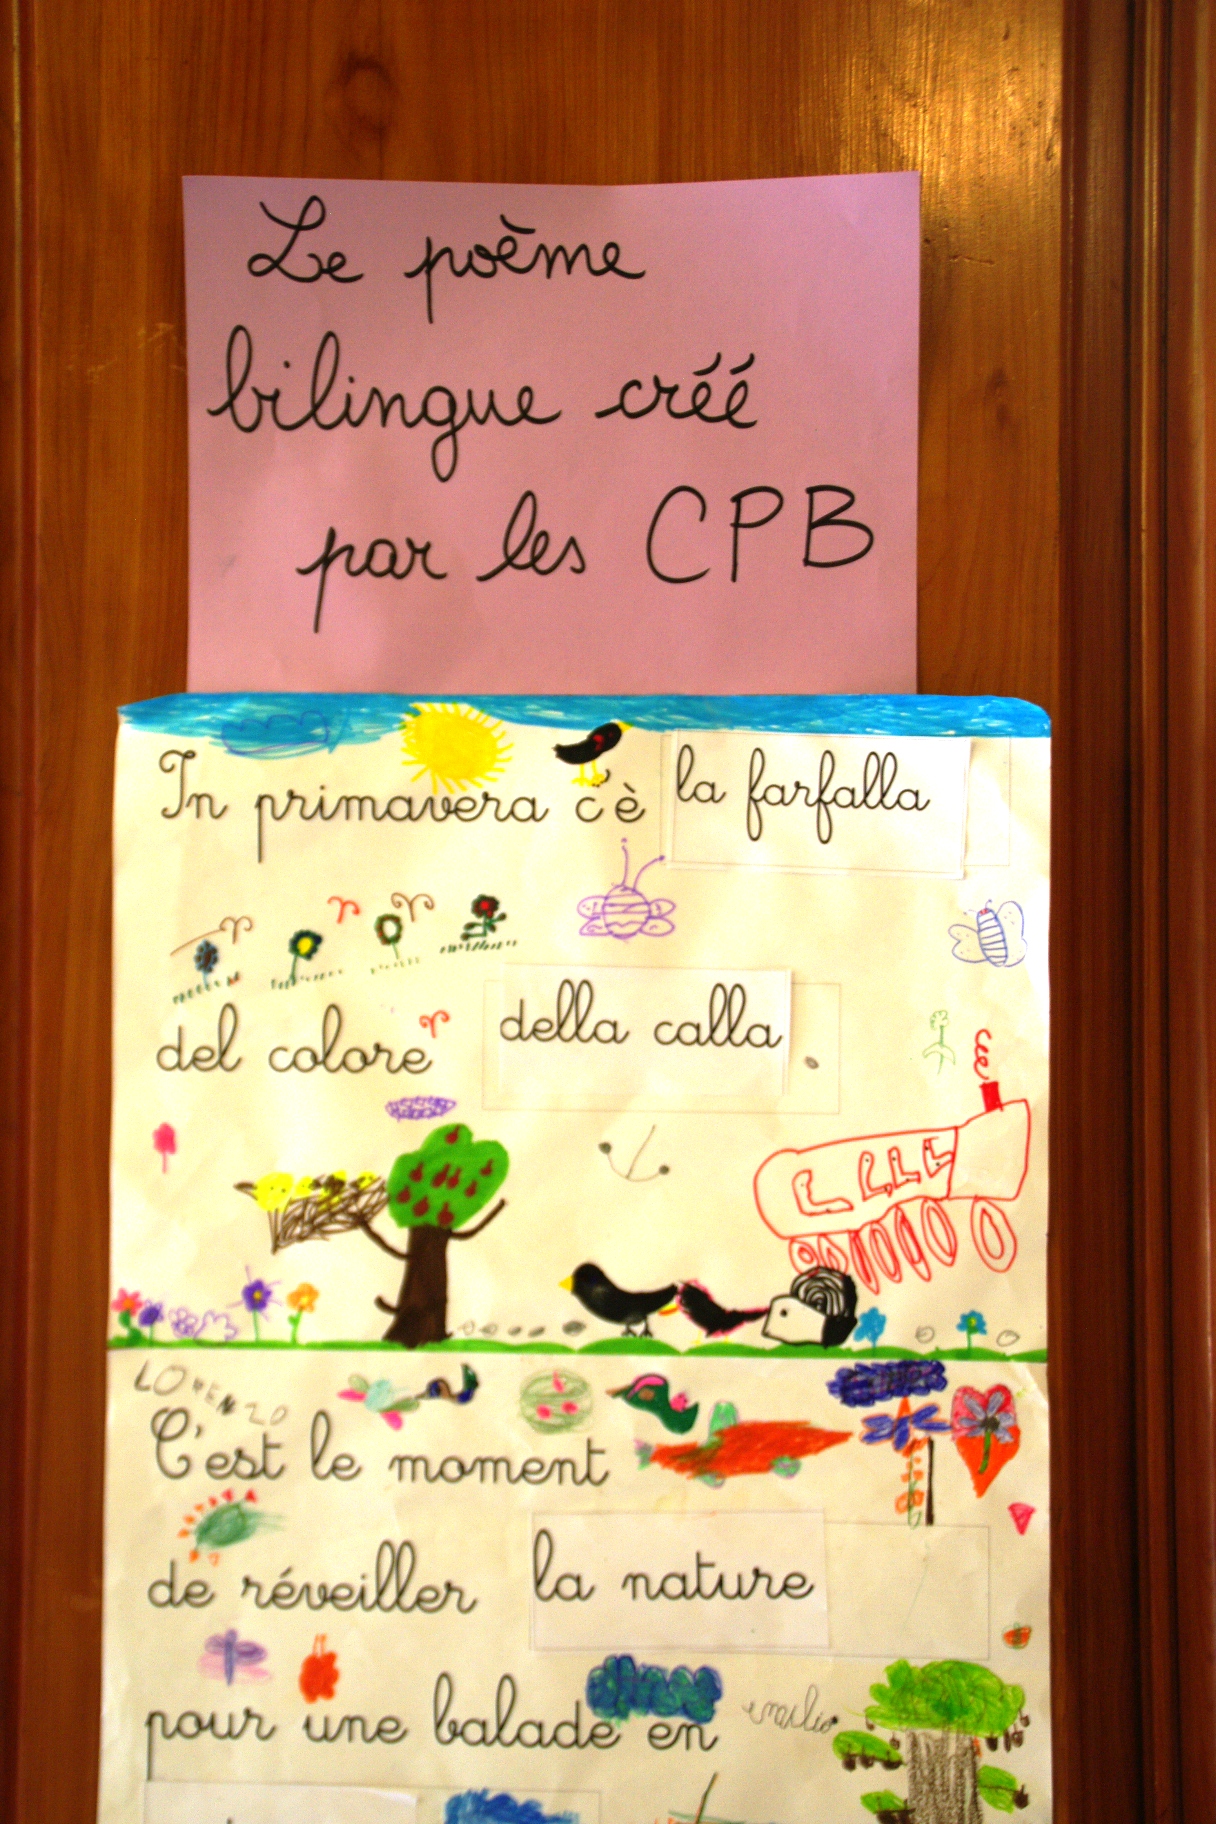 Le poème
bilingue créé
par les CPB
In primavera c'è la farfalla
del colore della calla
LORENZO
C'est le moment
de réveiller la nature
pour une balade en
emilio